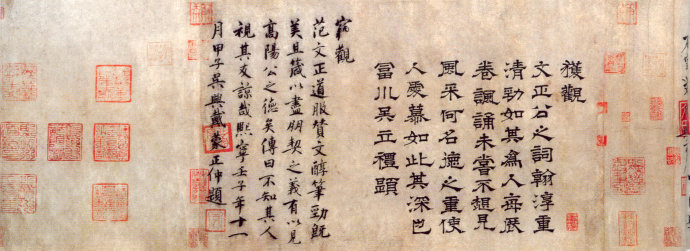 獲觀
文正公之詞翰淳重
清勁如其爲人每展
卷諷誦未嘗不想見
風采何名德之重使
人愛慕如此其深也
冨川吳立禮題
竊觀
范文正道服贊文醇筆勁既
美且箴以盡朋契之義有以見
高陽公之德矣傳曰不知其人
視其友諒哉熙寧壬子年十一
月甲子吳興戴蒙正仲題